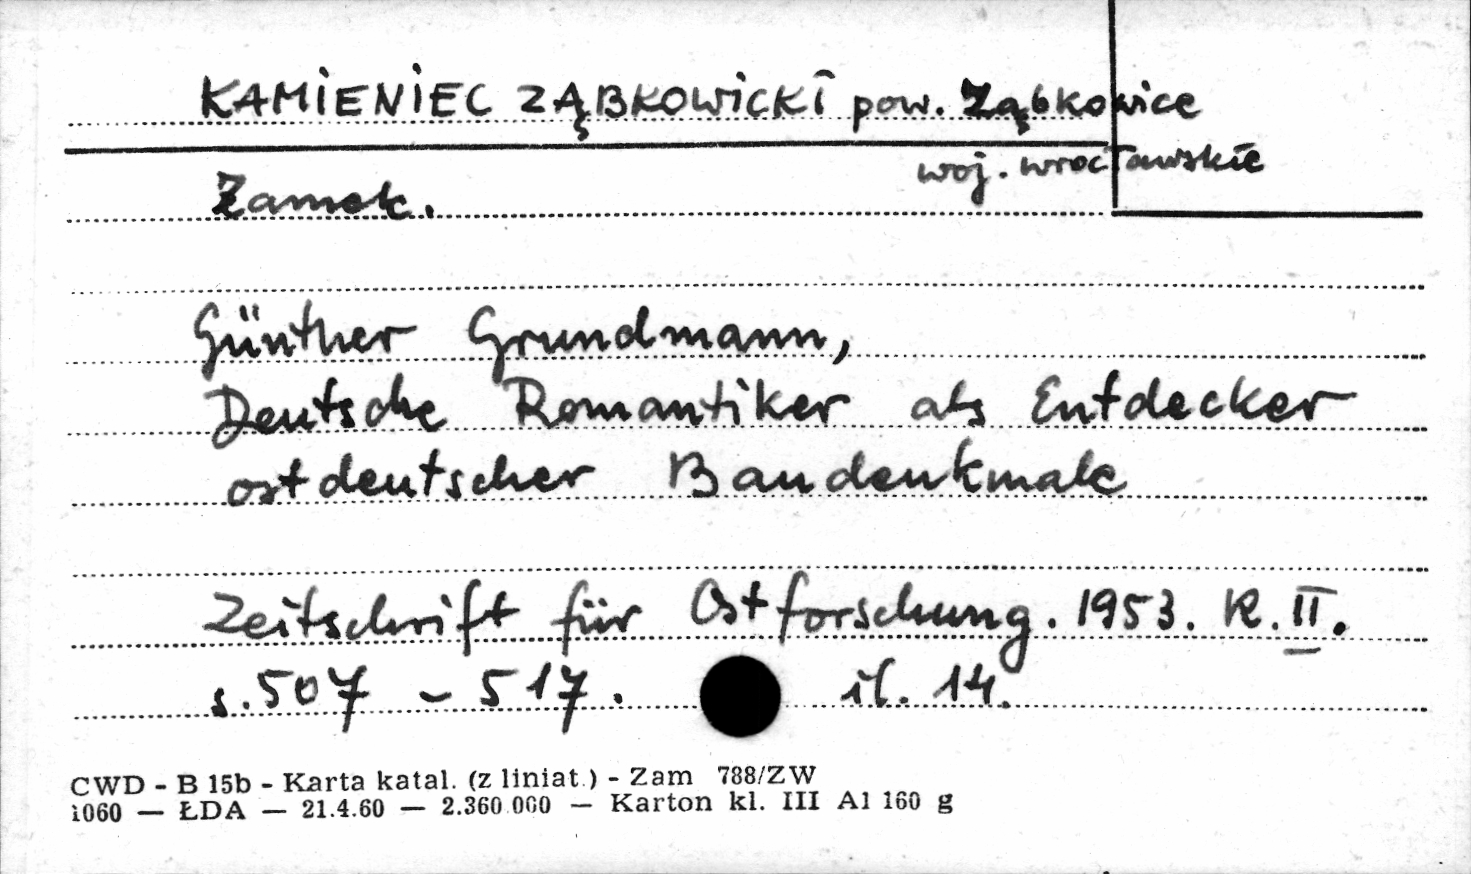 KAMIENIEC ZĄBKOWICKI pow. Ząbkowice
woj. wrocławskie
Zamek.
Günther Grundmann,
Deutsche Romantiker als Entdecker
ostdeutscher Baudenkmale
Zeitschrift für Ostforschung. 1953. R. II.
s. 507 - 517. il. 14.
CWD - B 15b - Karta katal. (z liniat.) - Zam 788/ZW
1060 — ŁDA — 21.4.60 — 2.360.000 — Karton kl. III A1 160 g